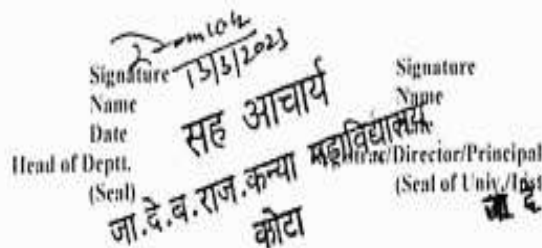 Signature 13/3/2023
Name
Date
Head of Deptt.
(Seal)
सह आचार्य
जा.दे.ब.राज.कन्या महाविद्यालय
कोटा
Signature
Name
/Director/Principal
(Seal of Univ./Inst
जा दे